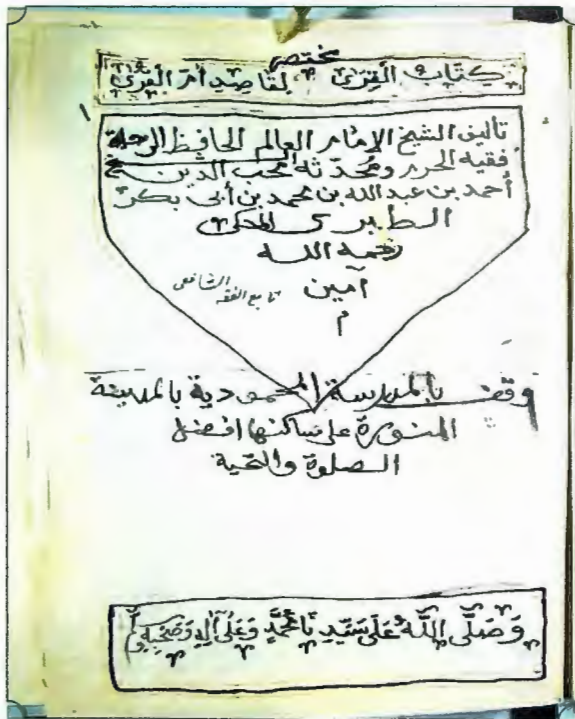 مختصر
كتاب القِرى لقاصد أم القرى
١
تأليف الشيخ الإمام العالم الحافظ الرحلة
فقيه الحرم ومحدثه محب الدين
أحمد بن عبد الله بن محمد بن أبي بكر
الطبري المكي
رحمه الله
آمين
تابع الفقه الشافعي
م
وقف بالمدرسة المحمودية بالمدينة
المنورة على ساكنها افضل
الصلوة والتحية
وَصَلَّى اللَّهُ عَلَى سَيِّدِنَا مُحَمَّدٍ وَعَلَى آلِهِ وَصَحْبِهِ